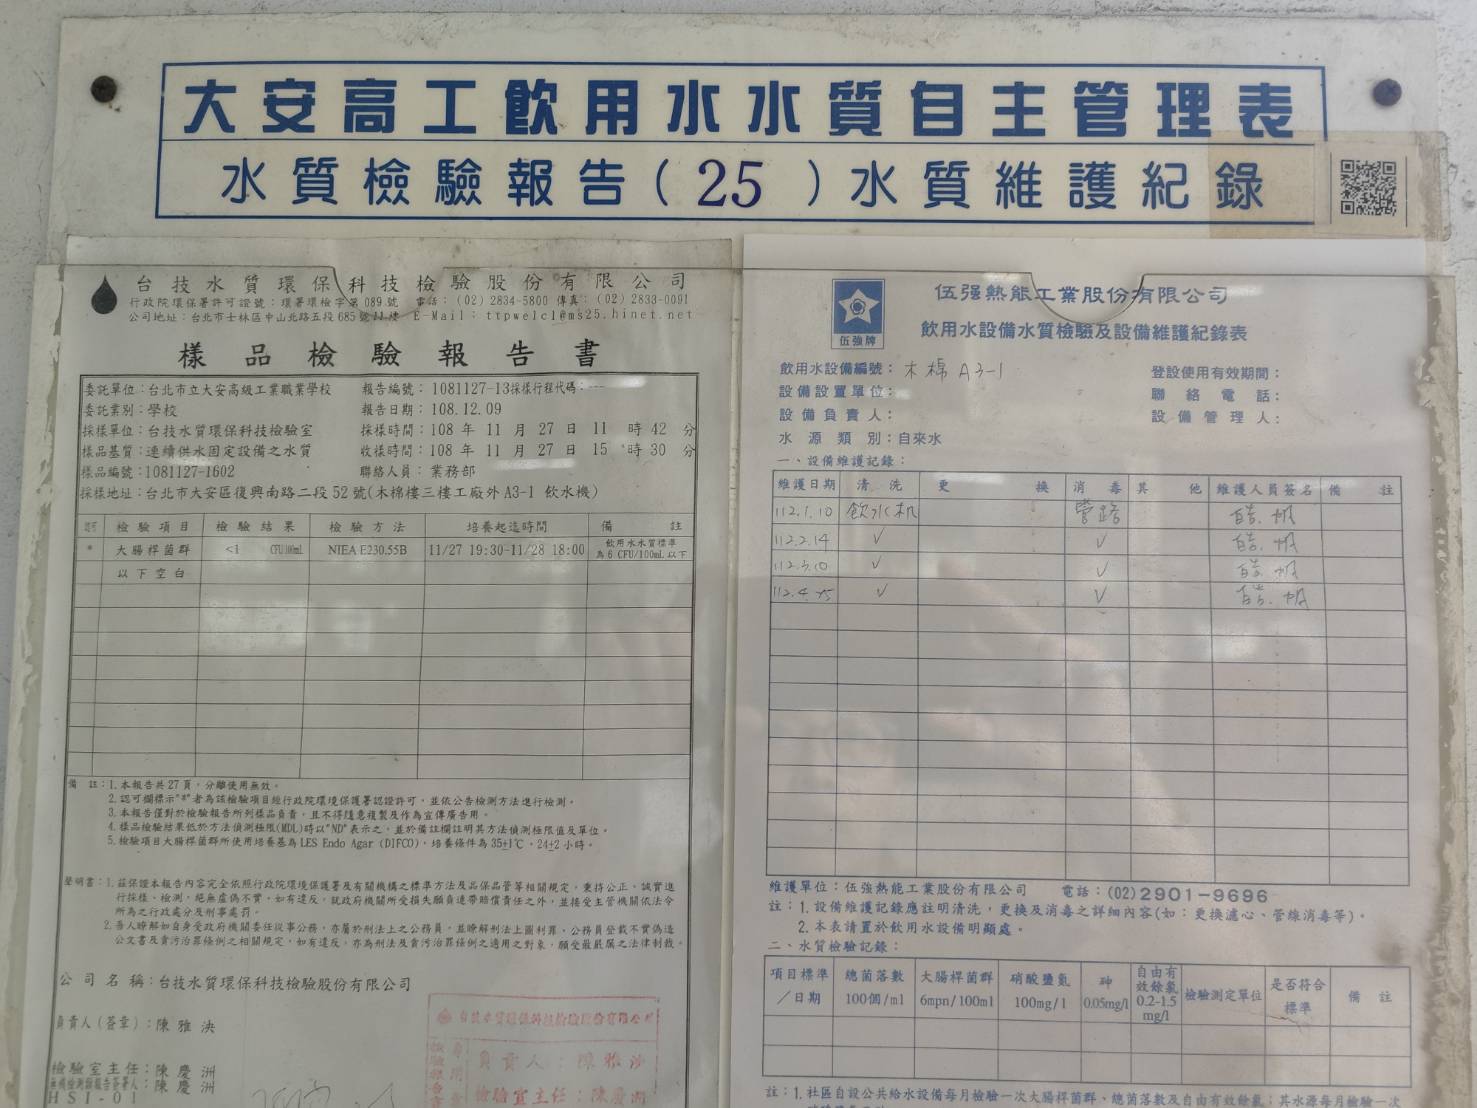 大安高工飲用水水質自主管理表
水質檢驗報告(25)水質維護紀錄
台技水質環保科技檢驗股份有限公司
行政院環保署許可證號：環署環檢字第089號 電話：(02) 2834-5800 傳真：(02) 2833-0091
公司地址：台北市士林區中山北路五段685號11樓 E-Mail：ttpwelcl@ms25.hinet.net
樣品檢驗報告書
委託單位：台北市立大安高級工業職業學校 報告編號：1081127-13採樣行程代碼：---
委託業別：學校 報告日期：108.12.09
採樣單位：台技水質環保科技檢驗室 採樣時間：108 年 11 月 27 日 11 時 42 分
樣品基質：連續供水固定設備之水質 收樣時間：108 年 11 月 27 日 15 時 30 分
樣品編號：1081127-1602 聯絡人員：業務部
採樣地址：台北市大安區復興南路二段52號(木棉樓三樓工廠外A3-1 飲水機)
認可 檢驗項目 檢驗結果 檢驗方法 培養起迄時間 備註
* 大腸桿菌群 <1 CFU/100mL NIEA E230.55B 11/27 19:30-11/28 18:00 飲用水水質標準為6 CFU/100mL以下
以下空白
備 註：1.本報告共27頁，分離使用無效。
2.認可欄標示"*"者為該檢驗項目經行政院環境保護署認證許可，並依公告檢測方法進行檢測。
3.本報告僅對於檢驗報告所列樣品負責，且不得隨意複製及作為宣傳廣告用。
4.樣品檢驗結果低於方法偵測極限(MDL)時以"ND"表示之，並於備註欄註明其方法偵測極限值及單位。
5.檢驗項目大腸桿菌群所使用培養基為LES Endo Agar (DIFCO)，培養條件為35±1℃，24±2小時。
聲明書：1.茲保證本報告內容完全依照行政院環境保護署及有關機構之標準方法及品保品管等相關規定，秉持公正、誠實進
行採樣、檢測，絕無虛偽不實，如有違反，就政府機關所受損失願負連帶賠償責任之外，並接受主管機關依法令
所為之行政處分及刑事處罰。
2.吾人瞭解如自身受政府機關委任從事公務，亦屬於刑法上之公務員，並瞭解刑法上圖利罪、公務員登載不實偽造
公文書及貪污治罪條例之相關規定，如有違反，亦為刑法及貪污治罪條例之適用之對象，願受最嚴厲之法律制裁。
公司名稱：台技水質環保科技檢驗股份有限公司
負責人(簽章)：陳雅泱
檢驗室主任：陳慶洲
陳慶洲
HSI-01
台技水質環保科技檢驗股份有限公司
負責人：陳雅
檢驗室主任：陳慶洲
伍強牌
伍强熱能工業股份有限公司
飲用水設備水質檢驗及設備維護紀錄表
飲用水設備編號：木棉 A3-1 登設使用有效期間：
設備設置單位： 聯絡電話：
設備負責人： 設備管理人：
水源類別：自來水
一、設備維護記錄：
維護日期 清洗 更換 消毒 其他 維護人員簽名 備註
112.1.10 飲水机 管路
112.2.14 ✓ ✓
112.3.10 ✓ ✓
112.4.25 ✓ ✓
維護單位：伍強熱能工業股份有限公司 電話：(02)2901-9696
註：1.設備維護記錄應註明清洗，更換及消毒之詳細內容(如：更換濾心、管線消毒等)。
2.本表請置於飲用水設備明顯處。
二、水質檢驗記錄：
項目標準／日期 總菌落數100個/ml 大腸桿菌群6mpn/100ml 硝酸鹽氮100mg/l 砷0.05mg/l 自由有效餘氯0.2-1.5mg/l 檢驗測定單位 是否符合標準 備註
註：1.社區自設公共給水設備每月檢驗一次大腸桿菌群、總菌落數及自由有效餘氯；其水源每月檢驗一次